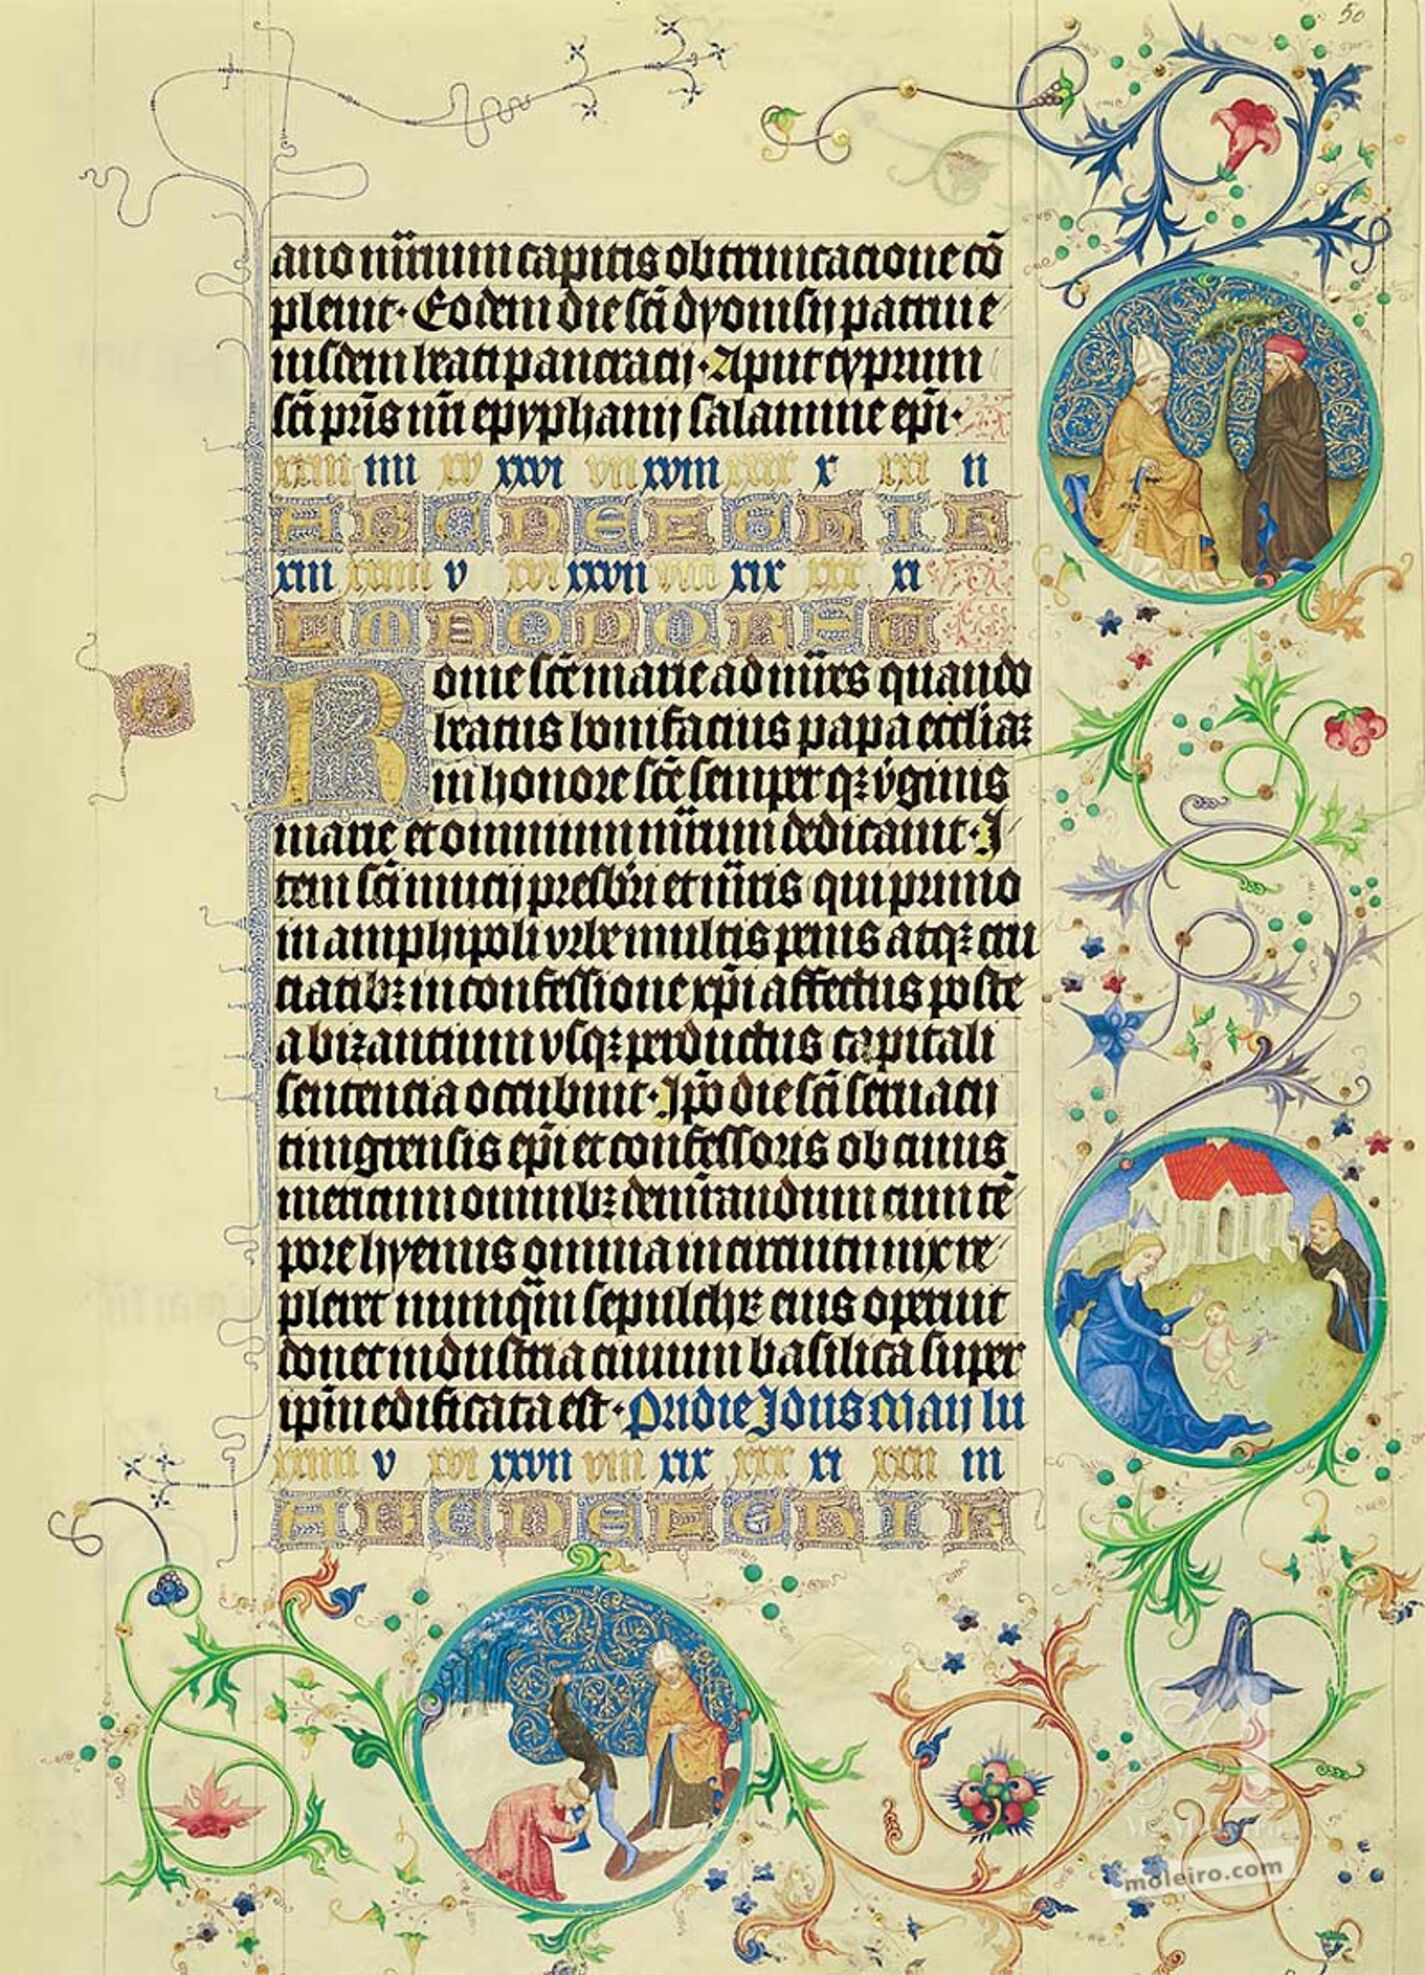 50
ano nr̄rium capitis obtruncacione cō
pleuit· Eodem die sc̄i dyonisij patrui e
iusdem beati pancracij· Aput cyprum
sc̄i pr̄is nr̄i epyphanij salamine ep̄i·
xxiii iiii xv xxvi vii xviii xxix x xxi ii
A B C D E F G H I K
xiii xxiiii v xvi xxvii viii xix xxx xi
L M N O P Q R S T
Rome sc̄e marie ad mr̄es quando
beatus bonifacius papa eccliaꝝ
in honore sc̄e semperqꝫ v̄ginis
marie et omnium mr̄rum dedicauit· I
tem sc̄i mucij presbr̄i et mr̄ris qui primo
in amphipoli vrbe multis penis atqꝫ cru
ciatibꝫ in confessione xp̄i affectus poste
a bizantium vsqꝫ perductus capitali
sentencia occubuit· Ip̄o die sc̄i seruacij
tungrensis ep̄i et confessoris ob cuius
meritum omnibꝫ demr̄andum cum tē
pore hyemis omnia in circuitu nix re
pleret numq̄m sepulchꝝ eius operuit
donec industria ciuium basilica super
ip̄m edificata est· Pridie Idus Maij lu
xxiiii v xvi xxvii viii xix xxx xi xxii iii
A B C D E F G H I K
G
M. Moleiro
moleiro.com